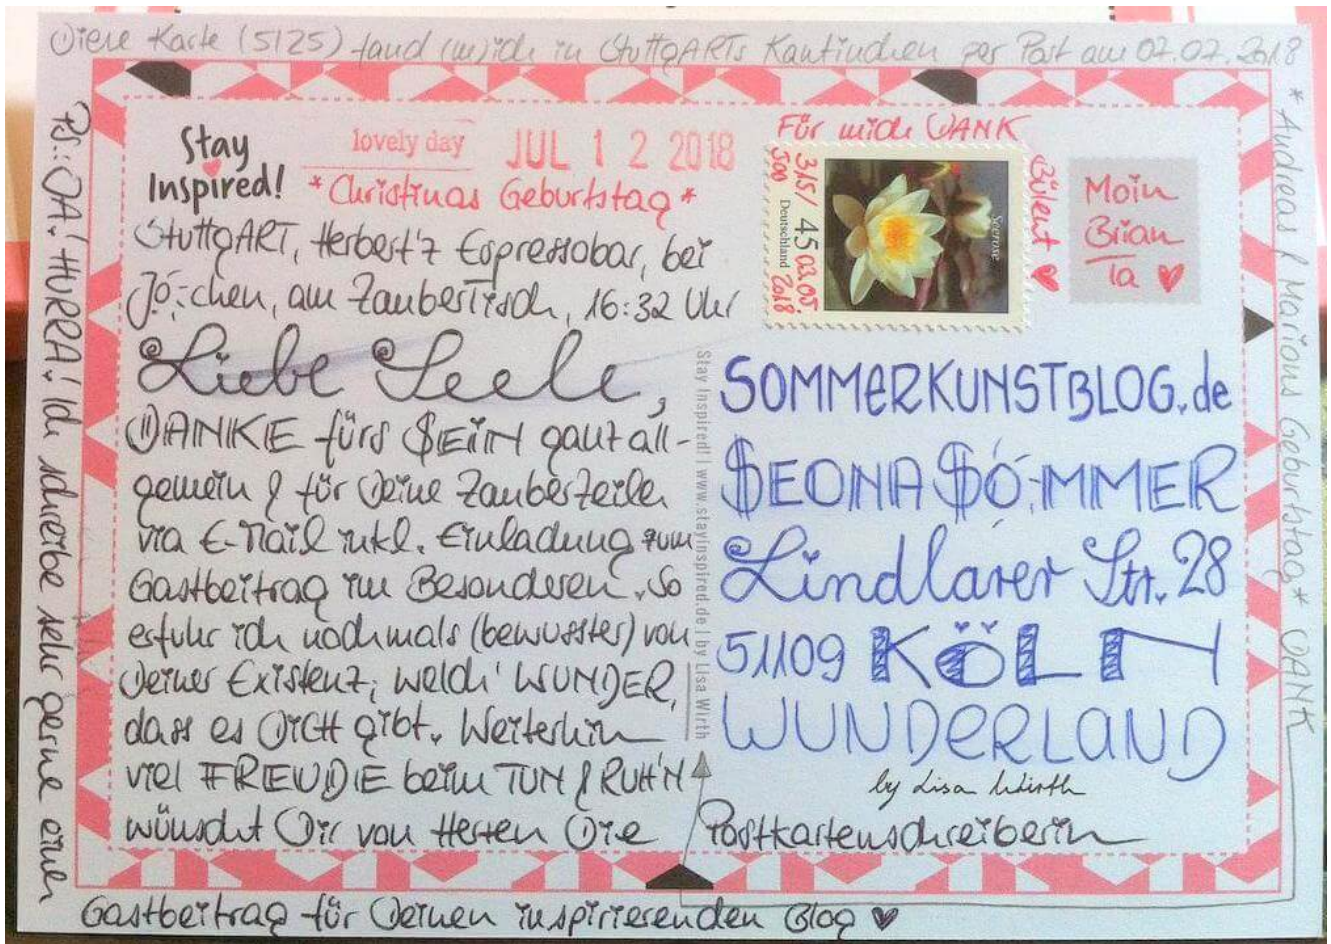 Diese Karte (5125) fand (m)ich in StuttgARTs Kaufinchen per Post am 07.07.2018
* Andreas & Marions Geburtstag * DANK
Stay
Inspired!
lovely day
JUL 12 2018
* Christinas Geburtstag *
Für mich DANK
Bülent ♥
315/
500
03.05.
2018
45
Deutschland
Seerose
Moin
Brian
Ia ♥
StuttgART, Herbert'z Espressobar, bei
Jö-chen, am ZauberTisch, 16:32 Uhr
Liebe Seele,
DANKE fürs $EIN ganz all-
gemein & für Deine Zauberzeilen
via E-Mail inkl. Einladung zum
Gastbeitrag im Besonderen. So
erfuhr ich nochmals (bewusster) von
Deiner Existenz; welch' WUNDER,
dass es DICH gibt. Weiterhin
viel FREUDE beim TUN & RUH'N
wünscht Dir von Herzen Die Postkartenschreiberin
Stay Inspired! | www.stayinspired.de | by Lisa Wirth
SOMMERKUNSTBLOG.de
$EONA $Ö-MMER
Lindlarer Str. 28
51109 KÖLN
WUNDERLAND
by Lisa Wirth
PS.: JA! HURRA! Ich schreibe sehr gerne einen
Gastbeitrag für Deinen inspirierenden Blog ♥